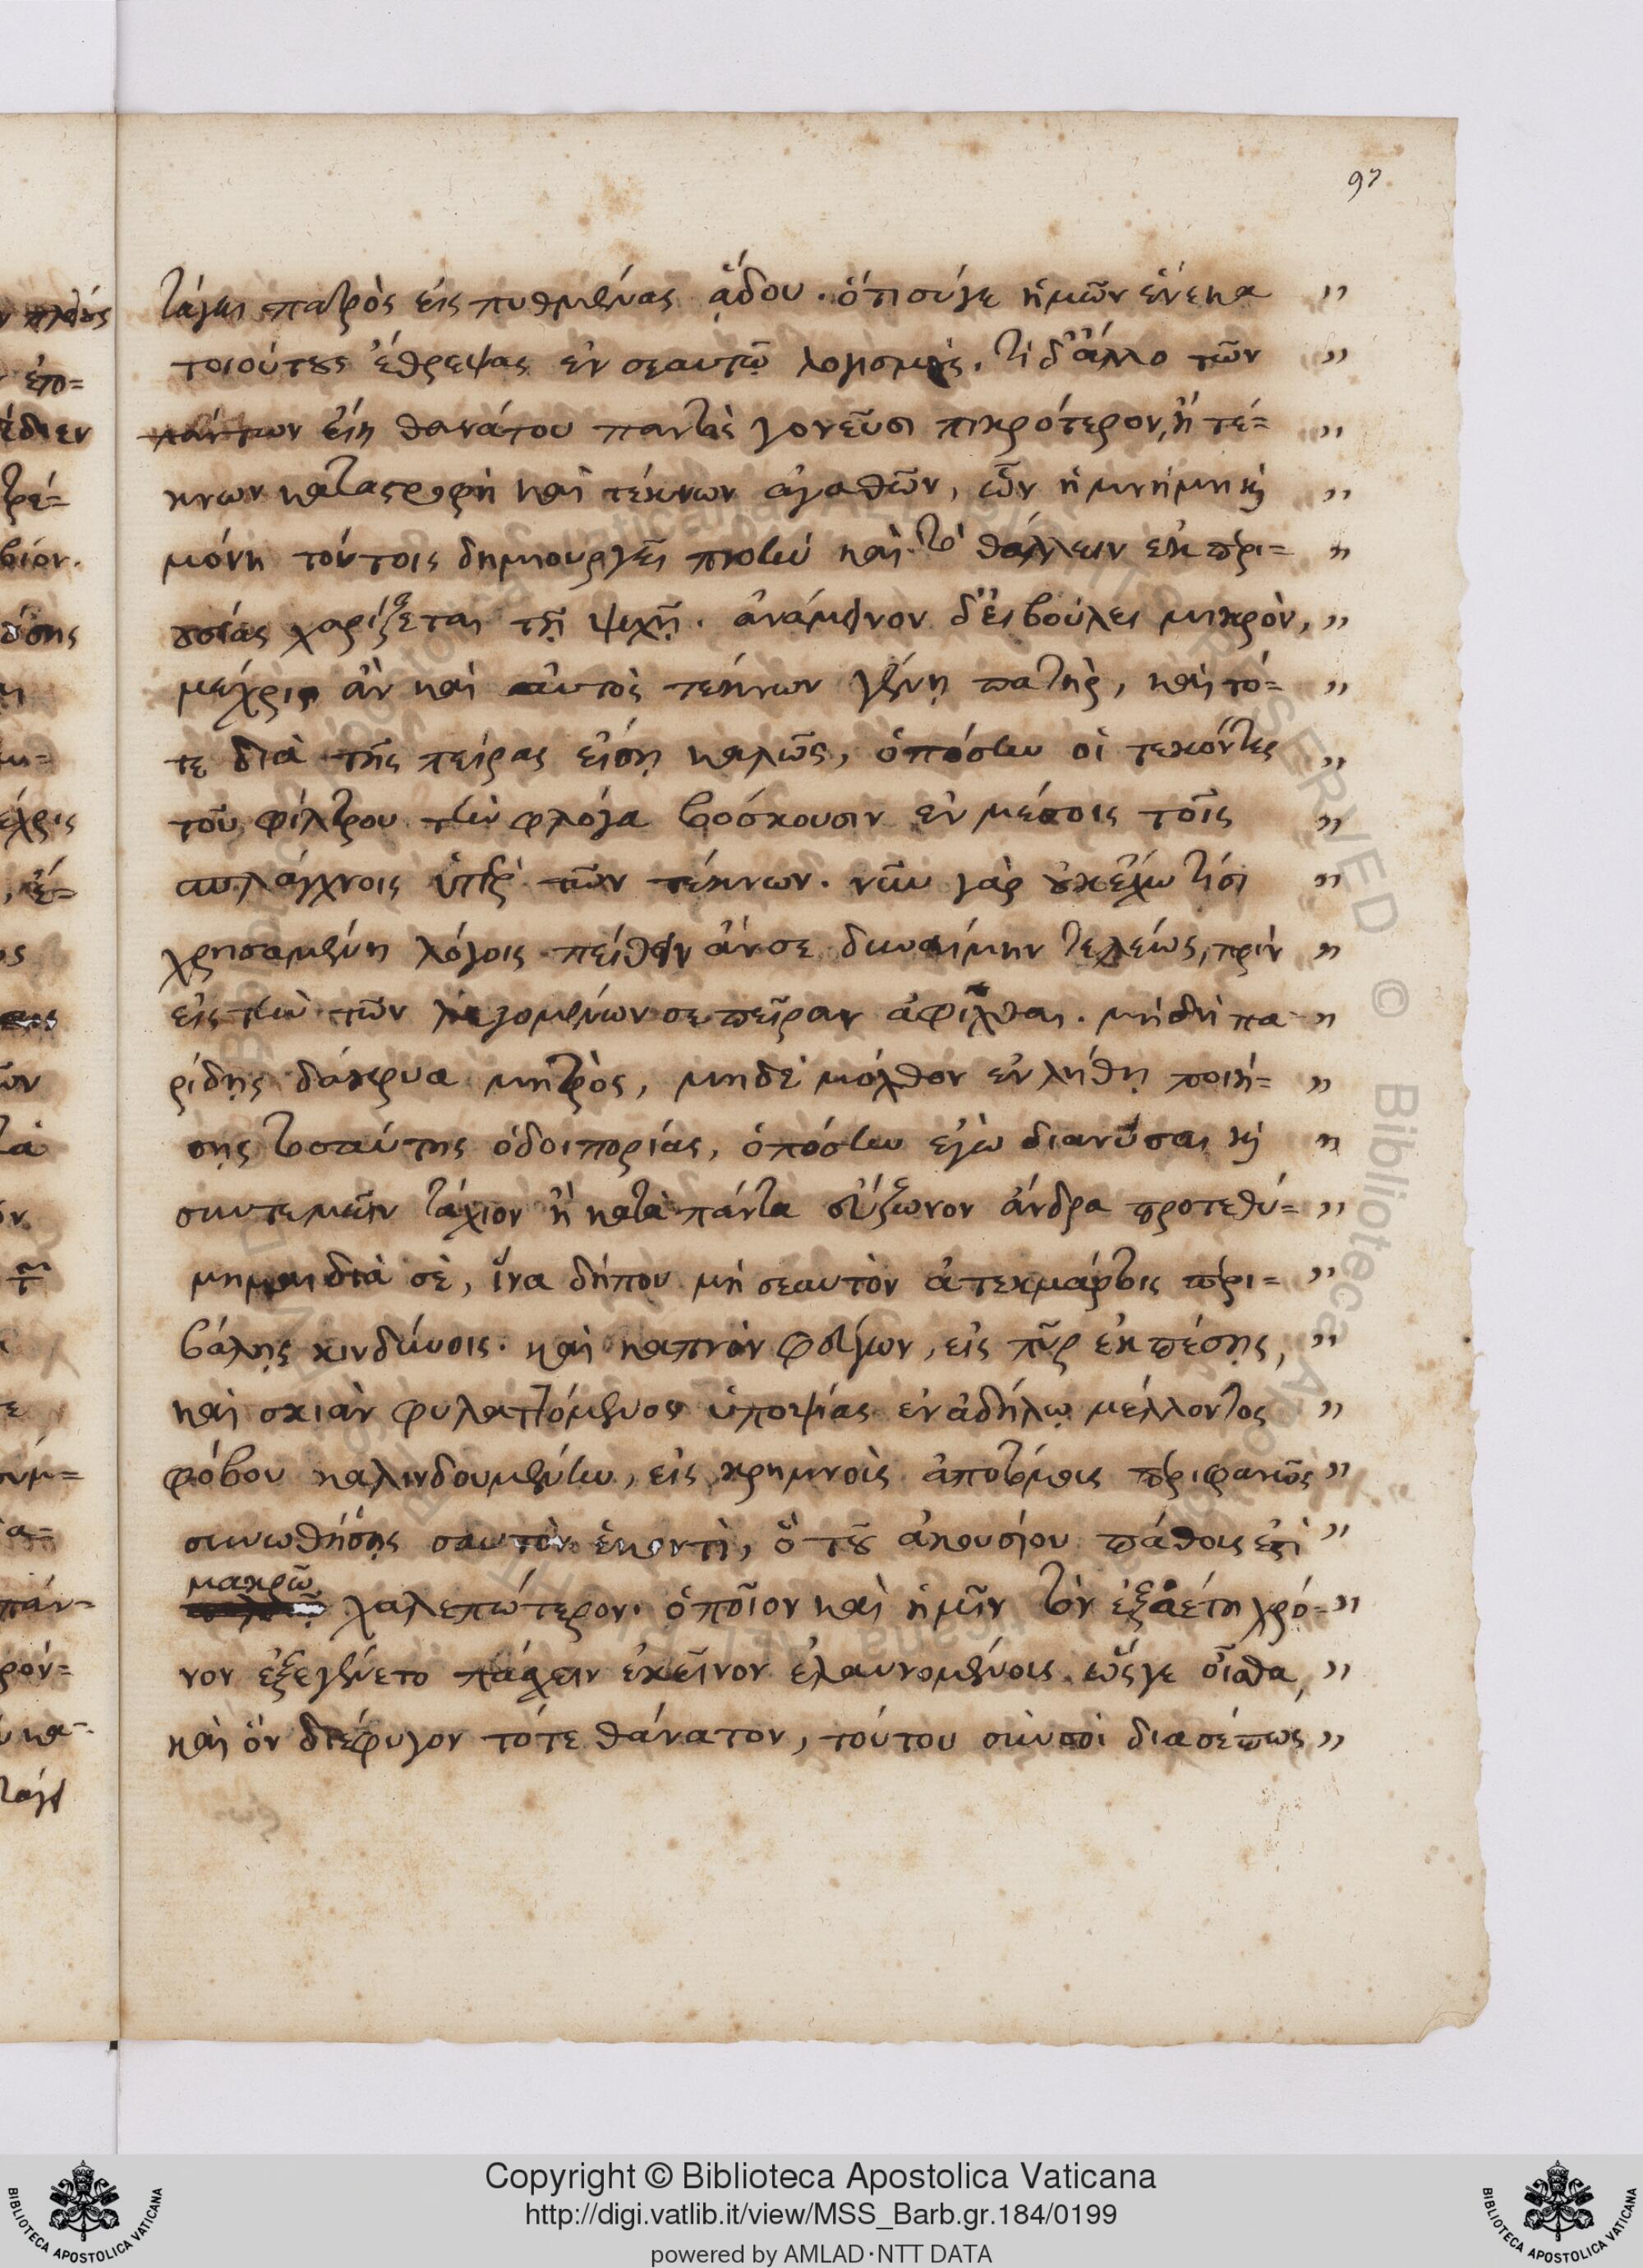 97
τάγει πατρὸς εἰς πυθμένας ᾅδου. ὅτι σύγε ἡμῶν ἕνεκα ”
τοιούτους ἔθρεψας ἐν σεαυτῷ λογισμούς. τί δ' ἄλλο τῶν ”
πάντων εἴη θανάτου παντὸς γονεῦσι πικρότερον, ἢ τέ= ”
κνων καταστροφὴ καὶ τέκνων ἀγαθῶν, ὧν ἡ μνήμη καὶ ”
μόνη τούτοις δημιουργεῖ πνοὴν καὶ τὸ θάλλειν ἐκ περι= ”
ουσίας χαρίζεται τῇ ψυχῇ. ἀνάμεινον δ' εἰ βούλει μικρὸν, ”
μέχρις ἂν καὶ αὐτὸς τέκνων γένῃ πατὴρ, καὶ τό= ”
τε διὰ τῆς πείρας εἴσῃ καλῶς, ὁπόσην οἱ τεκόντες ”
τοῦ φίλτρου τὴν φλόγα βόσκουσιν ἐν μέσοις τοῖς ”
σπλάγχνοις ὑπὲρ τῶν τέκνων. νῦν γὰρ οὐκ ἔχω τίσι ”
χρησαμένη λόγοις πείθειν ἄν σε δυναίμην τελέως, πρὶν ”
εἰς τὴν τῶν λεγομένων σε πεῖραν ἀφῖχθαι. μὴ δὴ πα ”
ρίδῃς δάκρυα μητρὸς, μηδὲ μόχθον ἐν λήθῃ ποιή= ”
σῃς τοσαύτης ὁδοιπορίας, ὁπόσην ἐγὼ διανύσαι καὶ ”
συντεμεῖν τάχιον ἢ κατὰ πάντα εὔζωνον ἄνδρα προτεθύ= ”
μημαι διὰ σὲ, ἵνα δήπου μὴ σεαυτὸν ἀτεκμάρτοις περι= ”
βάλῃς κινδύνοις. καὶ καπνὸν φεύγων, εἰς πῦρ ἐκπέσῃς, ”
καὶ σκιὰν φυλαττόμενος ὑποψίας ἐν ἀδήλῳ μέλλοντος ”
φόβου καλινδουμένην, εἰς κρημνοὺς ἀποτόμους περιφανῶς ”
συνωθήσῃς σαυτὸν ἑκοντὶ, ὃ τοῦ ἀκουσίου πάθους ἐστὶ ”
μακρῷ
χαλεπώτερον. ὁποῖον καὶ ἡμῖν τὸν ἑξαέτη χρό= ”
νον ἐξεγένετο πάσχειν ἐκεῖνον ἐλαυνομένοις. ὥς γε οἶσθα, ”
καὶ ὃν διέφυγον τότε θάνατον, τούτου σύν σοι διασέσπως ”
Copyright © Biblioteca Apostolica Vaticana
http://digi.vatlib.it/view/MSS_Barb.gr.184/0199
powered by AMLAD·NTT DATA
BIBLIOTECA APOSTOLICA VATICANA
BIBLIOTECA APOSTOLICA VATICANA